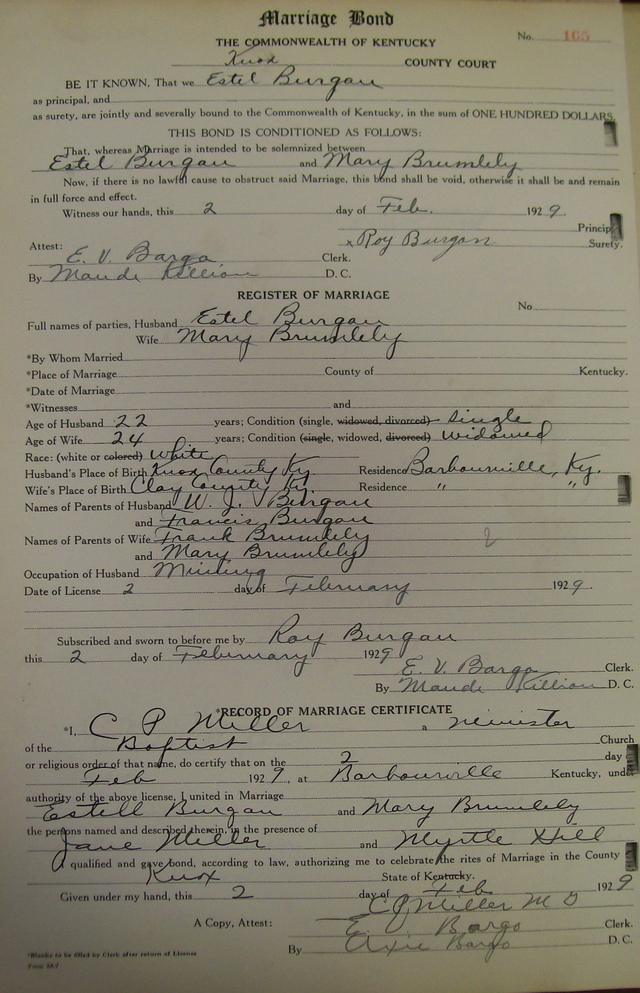 Marriage Bond
No. 165
THE COMMONWEALTH OF KENTUCKY
Knox COUNTY COURT
BE IT KNOWN, That we Estel Burgan
as principal, and
as surety, are jointly and severally bound to the Commonwealth of Kentucky, in the sum of ONE HUNDRED DOLLARS.
THIS BOND IS CONDITIONED AS FOLLOWS:
That, whereas Marriage is intended to be solemnized between
Estel Burgan and Mary Brumlely
Now, if there is no lawful cause to obstruct said Marriage, this bond shall be void, otherwise it shall be and remain
in full force and effect.
Witness our hands, this 2 day of Feb. 1929.
Principal
x Roy Burgan Surety.
Attest: E. V. Bargo Clerk.
By Maude Killian D. C.
REGISTER OF MARRIAGE
No
Full names of parties, Husband Estel Burgan
Wife Mary Brumlely
*By Whom Married
*Place of Marriage County of Kentucky.
*Date of Marriage
*Witnesses and
Age of Husband 22 years; Condition (single, widowed, divorced) Single
Age of Wife 24 years; Condition (single, widowed, divorced) Widowed
Race: (white or colored) White
Husband's Place of Birth Knox County Ky. Residence Barbourville, Ky.
Wife's Place of Birth Clay County Ky. Residence " "
Names of Parents of Husband W. J. Burgan
and Francis Burgan
Names of Parents of Wife Frank Brumlely
and Mary Brumlely
Occupation of Husband Mining
Date of License 2 day of Februrary 1929.
Subscribed and sworn to before me by Roy Burgan
this 2 day of Februrary 1929
E. V. Bargo Clerk.
By Maude Killian D. C.
*RECORD OF MARRIAGE CERTIFICATE
*I, C P Miller a minister
of the Baptist Church
or religious order of that name, do certify that on the 2 day
Feb 1929, at Barbourville Kentucky, under
authority of the above license, I united in Marriage
Estell Burgan and Mary Brumlely
the persons named and described therein, in the presence of
Jane Miller and Myrtle Hill
qualified and gave bond, according to law, authorizing me to celebrate the rites of Marriage in the County
Knox State of Kentucky.
Given under my hand, this 2 day of Feb 1929
C P Miller M G
A Copy, Attest: E. V. Bargo Clerk.
By Bargo D. C.
*Blanks to be filled by Clerk after return of License